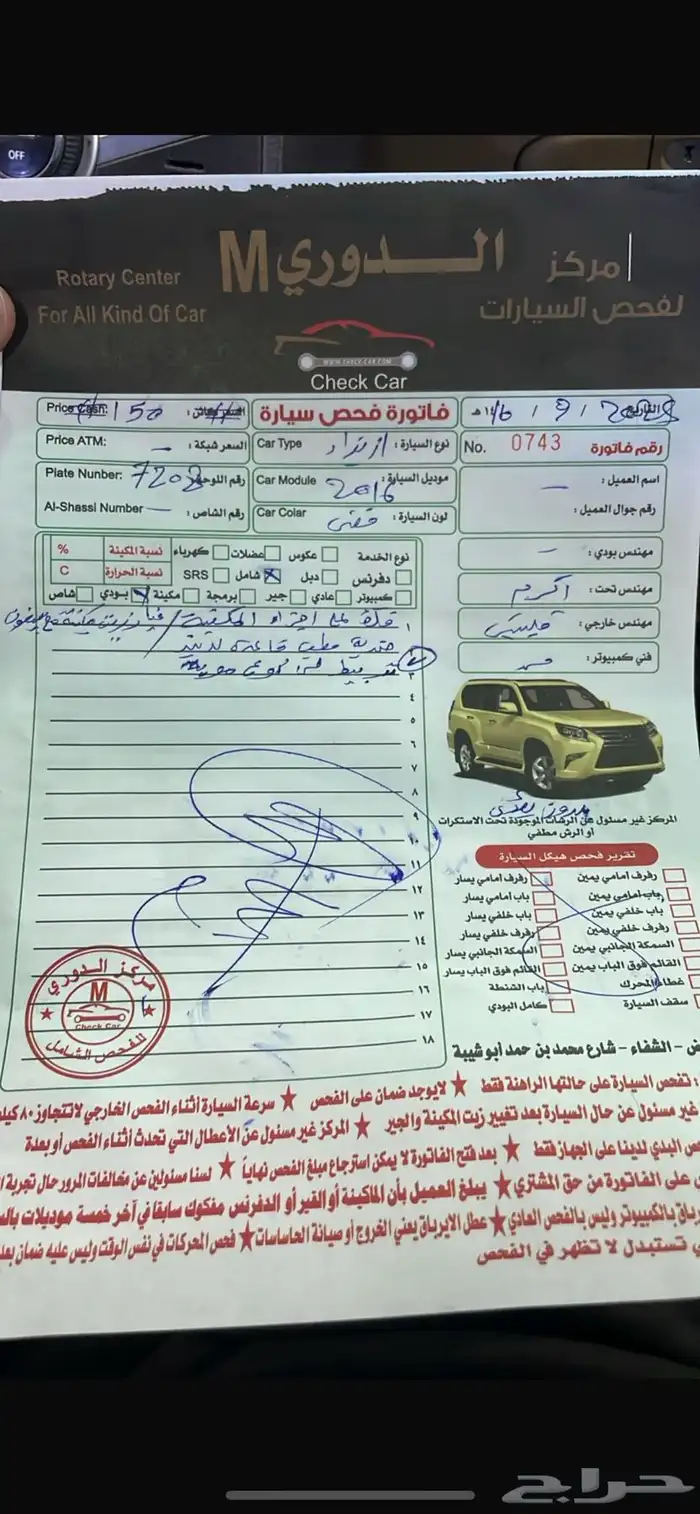 OFF
مركز الـدوري M
لفحص السيارات
Rotary Center
For All Kind Of Car
WWW.CHECK-CAR.COM
Check Car
Price Cash: 150
فاتورة فحص سيارة
التاريخ 16 / 9 /
Price ATM: — السعر شبكة :
Car Type نوع السيارة :
No. 0743 رقم فاتورة
Plate Nunber: 7208 رقم اللوحة
Car Module 2016 موديل السيارة :
اسم العميل : —
Al-Shassi Number — رقم الشاص :
Car Colar لون السيارة : فضي
رقم جوال العميل :
نوع الخدمة عكوس عضلات كهرباء
نسبة المكينة %
دفرنس دبل شامل SRS
نسبة الحرارة C
كمبيوتر عادي جير برمجة مكينة بودي شاص
مهندس بودي : —
مهندس تحت : اكرم
مهندس خارجي :
فني كمبيوتر :
١
٢
٣
٤
٥
٦
٧
٨
٩
١٠
١١
١٢
١٣
١٤
١٥
١٦
١٧
١٨
بدون بودي
المركز غير مسئول عن الرشات الموجودة تحت الاستكرات
او الرش مطفي
تقرير فحص هيكل السيارة
رفرف امامي يمين رفرف امامي يسار
باب امامي يمين باب امامي يسار
باب خلفي يمين باب خلفي يسار
رفرف خلفي يمين رفرف خلفي يسار
السمكة الجانبي يمين السمكة الجانبي يسار
القائم فوق الباب يمين القائم فوق الباب يسار
غطاء المحرك باب الشنطة
سقف السيارة كامل البودي
مركز الدوري
M
Check Car
للفحص الشامل
الشفاء - شارع محمد بن حمد أبو شيبة
تفحص السيارة على حالتها الراهنة فقط ★ لايوجد ضمان على الفحص ★ سرعة السيارة أثناء الفحص الخارجي لاتتجاوز ٨٠
غير مسئول عن حال السيارة بعد تغيير زيت المكينة والجير ★ المركز غير مسئول عن الأعطال التي تحدث أثناء الفحص أو بعدة
البدي لدينا على الجهاز فقط ★ بعد فتح الفاتورة لا يمكن استرجاع مبلغ الفحص نهائياً ★ لسنا مسئولين عن مخالفات المرور حال تجربة
على الفاتورة من حق المشتري ★ يبلغ العميل بأن الماكينة أو القير أو الدفرنس مفكوك سابقا في آخر خمسة موديلات
بالكمبيوتر وليس بالفحص العادي ★ عطل الايرباق يعني الخروج أو صيانة الحساسات ★ فحص المحركات في نفس الوقت وليس عليه ضمان
تستبدل لا تظهر في الفحص
حراج